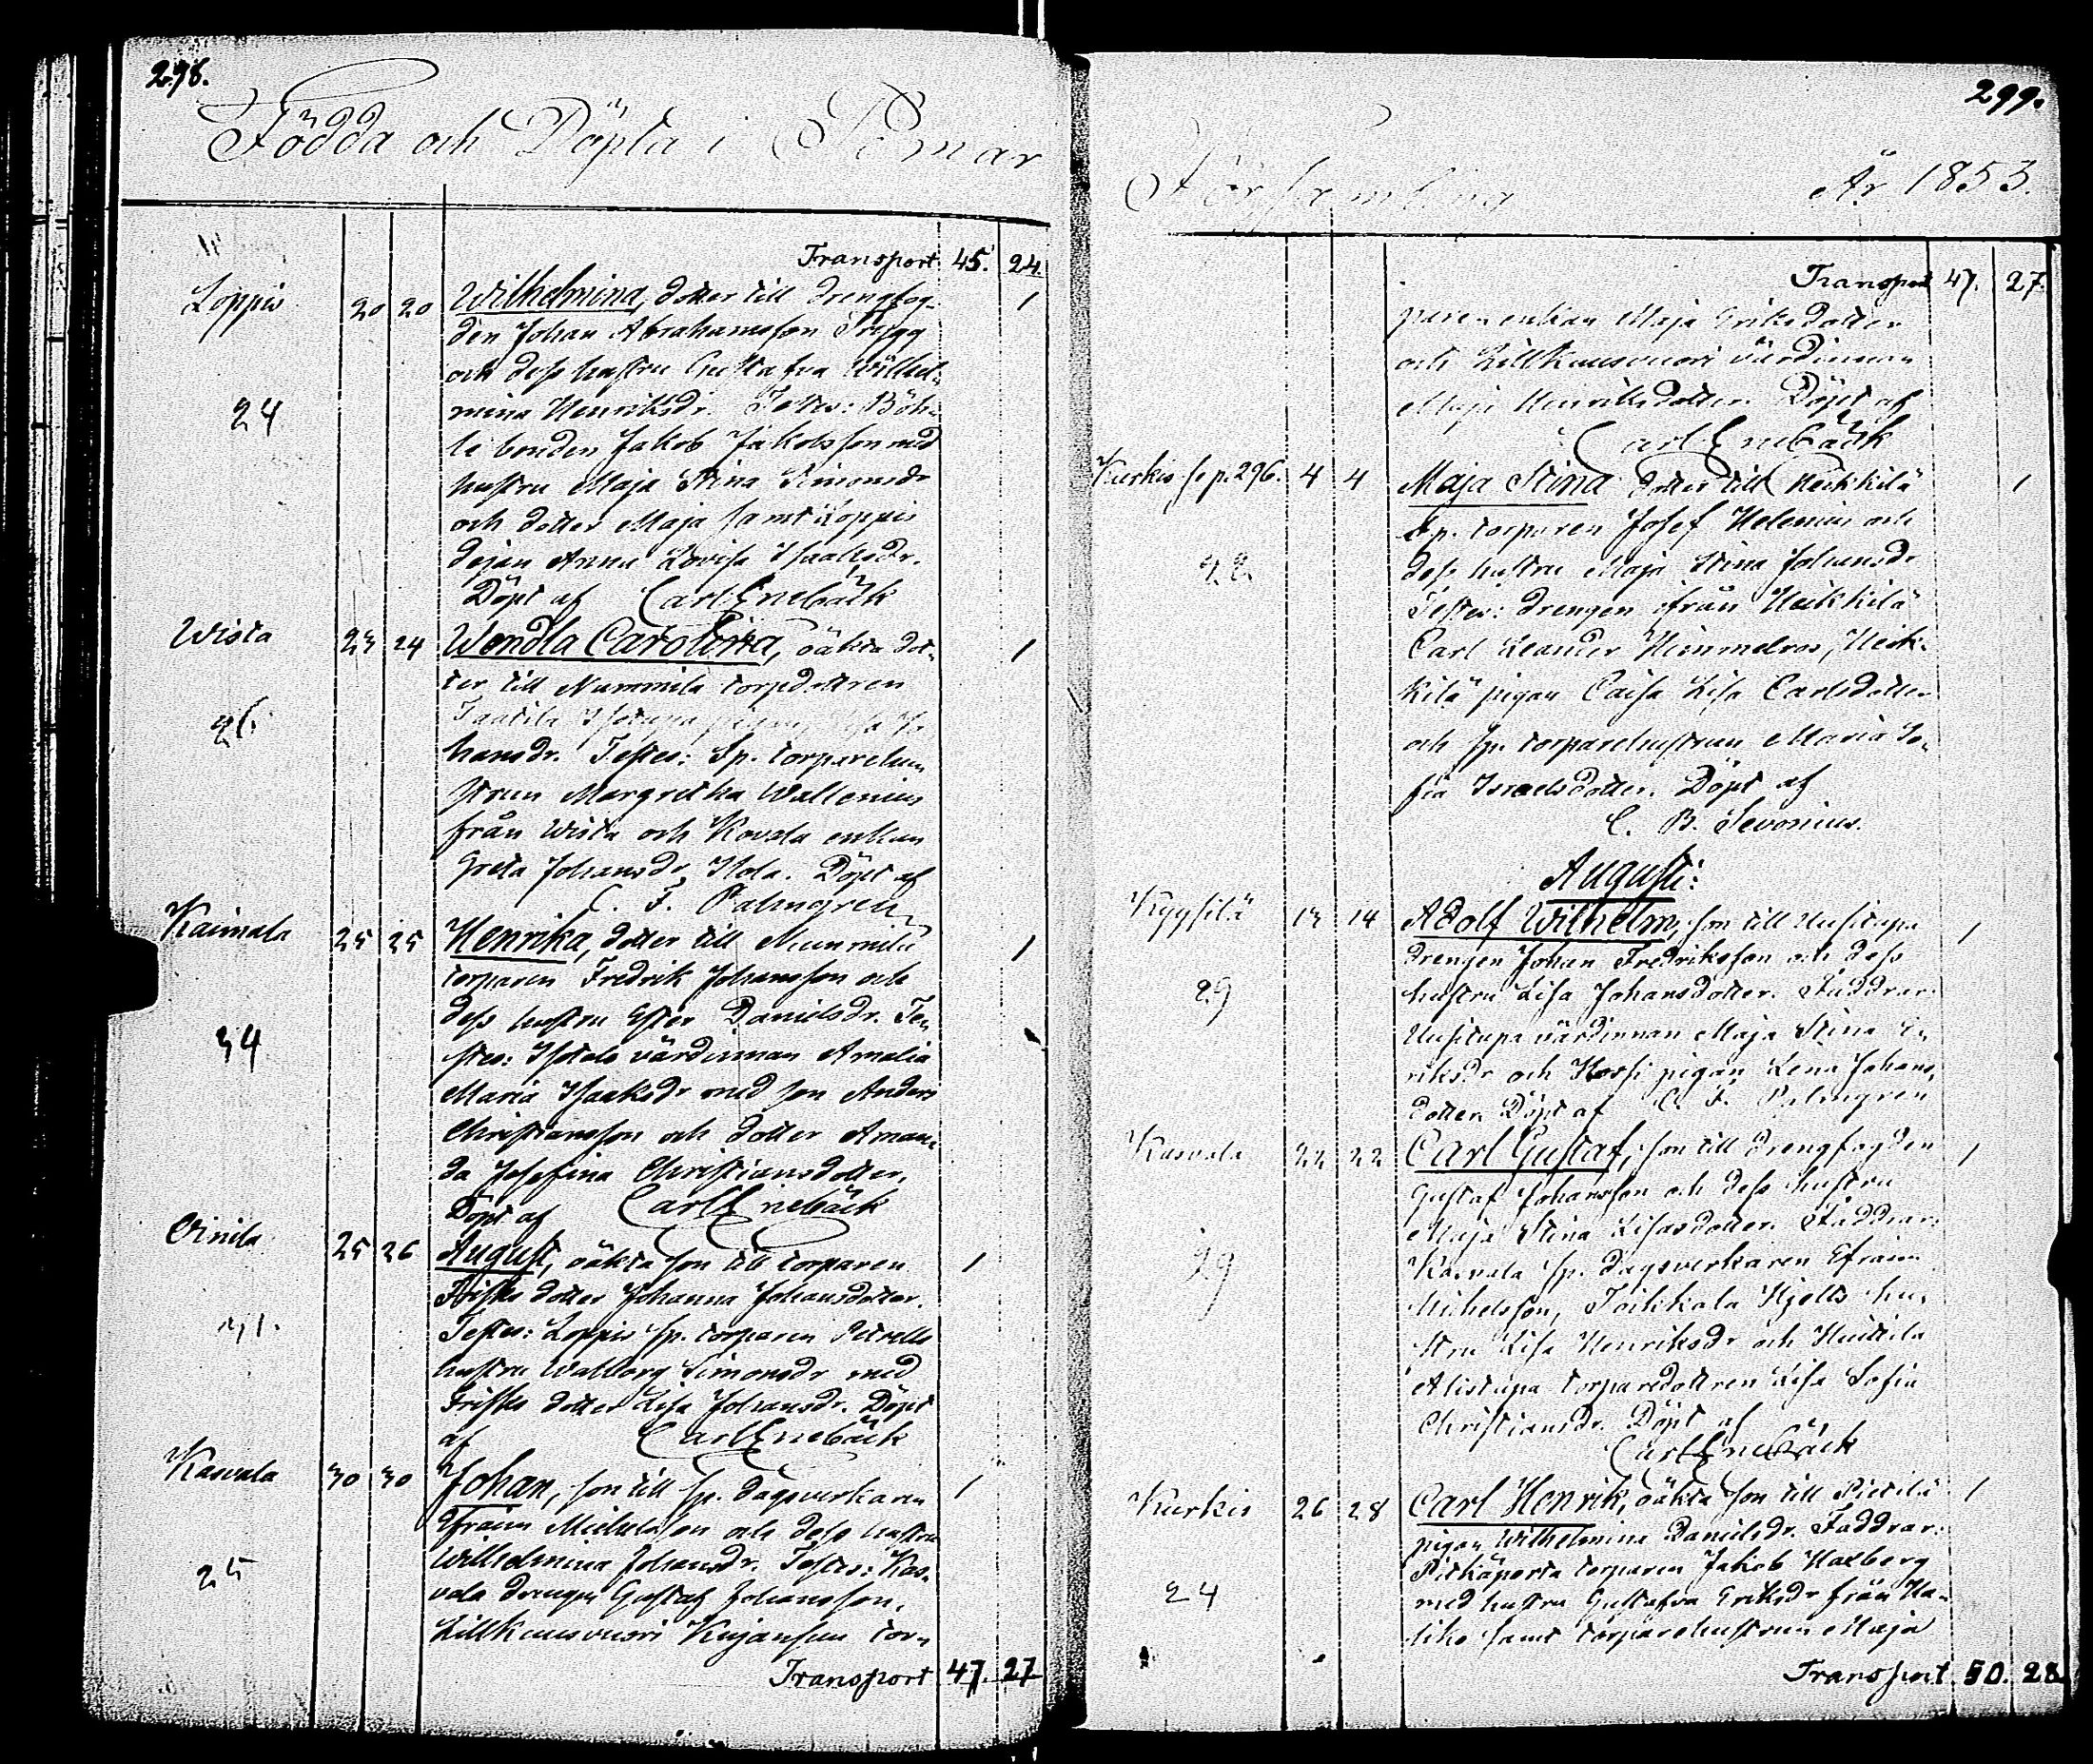 298.
Födda och Döpta i Sömar
Transport 45. 24.
Loppis 20 20 Wilhelmina, dotter till drengfog-
den Johan Abrahamsson Trygg
och dess hustru Gustafva Wilhel-
mina Henriksdr. Testes: Böh-
24
le bonden Jakob Jakobsson med
hustru Maja Stina Simonsdr
och dotter Maja samt Loppis
dejan Anna Lovisa Isaaksdr.
Döpt af Carl Enebäck
Wista 23 24 Wendla Carolina, oäkta dot-
ter till Nummila torpdottren
26.
hansdr. Testes: Sp. torparehu-
strun Margretha Wallenius
från Wista och Kovala enkan
Greta Johansdr Hola. Döpt af
C. F. Palmgren
Kaimala 25 25 Henrika, dotter till Munmila
torparen Fredrik Johansson och
dess hustru Ester Danielsdr. Te-
34
stes: Isotalo värdinnan Amalia
Maria Isaaksdr med son Anders
Christiansson och dotter Aman-
da Josefina Christiansdotter.
Döpt af Carl Enebäck
Oinila 25 26 August, oäkta son till torparen
Frisks dotter Johanna Johansdotter.
Testes: Loppis sp. torparen Petrells
hustru Walborg Simonsdr med
Frisks dotter Lisa Johansdr. Döpt
af Carl Enebäck
Kasvala 30 30 Johan, son till sp. dagsverkaren
Efraim Michelsson och dess hustru
Wilhelmina Johansdr. Testes: Kas-
25
vala drengen Gustaf Johansson,
Lillkuusvuori Kujansuu tor-
Transport 47. 27
299.
Församling År 1853.
Transport 47. 27.
pareenkan Maja Eriksdotter
och Lillkuusvuori värdinnan
Maja Henriksdotter. Döpt af
Carl Enebäck
Kurkis se p. 296. 4 4 Maja Stina dotter till Heikkilä
sp. torparen Josef Helenius och
28
dess hustru Maja Stina Johansdr
Testes: drengen ifrån Heikkilä
Carl Leander Himmelros, Heik-
kilä pigan Caisa Lisa Carlsdotter
och sp. torparehustrun Maria So-
fia Israelsdotter. Döpt af
C. B. Sevonius.
Augusti:
Kyysilä 13 14 Adolf Wilhelm, son till Uusitupa
drengen Johan Fredriksson och dess
29
hustru Lisa Johansdotter. Faddrar:
Uusitupa värdinnan Maja Stina E-
riksdr och Hossi pigan Lena Johans-
dotter. Döpt af C. F. Palmgren
Kasvala 22 22 Carl Gustaf, son till drengfogden
Gustaf Johansson och dess hustru
Maja Stina Lisasdotter. Faddrar:
29
Kasvala sp. dagsverkaren Efraim
Michelsson, Toikkala Hjelts hu-
stru Lisa Henriksdr och Huittila
Alistupa torparedottren Lisa Sofia
Christiansdr. Döpt af
Carl Enebäck
Kurkis 26 28 Carl Henrik, oäkta son till Pietilä
pigan Wilhelmina Danielsdr. Faddrar:
24
Pitkäporta torparen Jakob Haxberg
med hustru Gustafva Eriksdr från Ha-
liko samt torparehustrun Maja
Transport. 50. 28